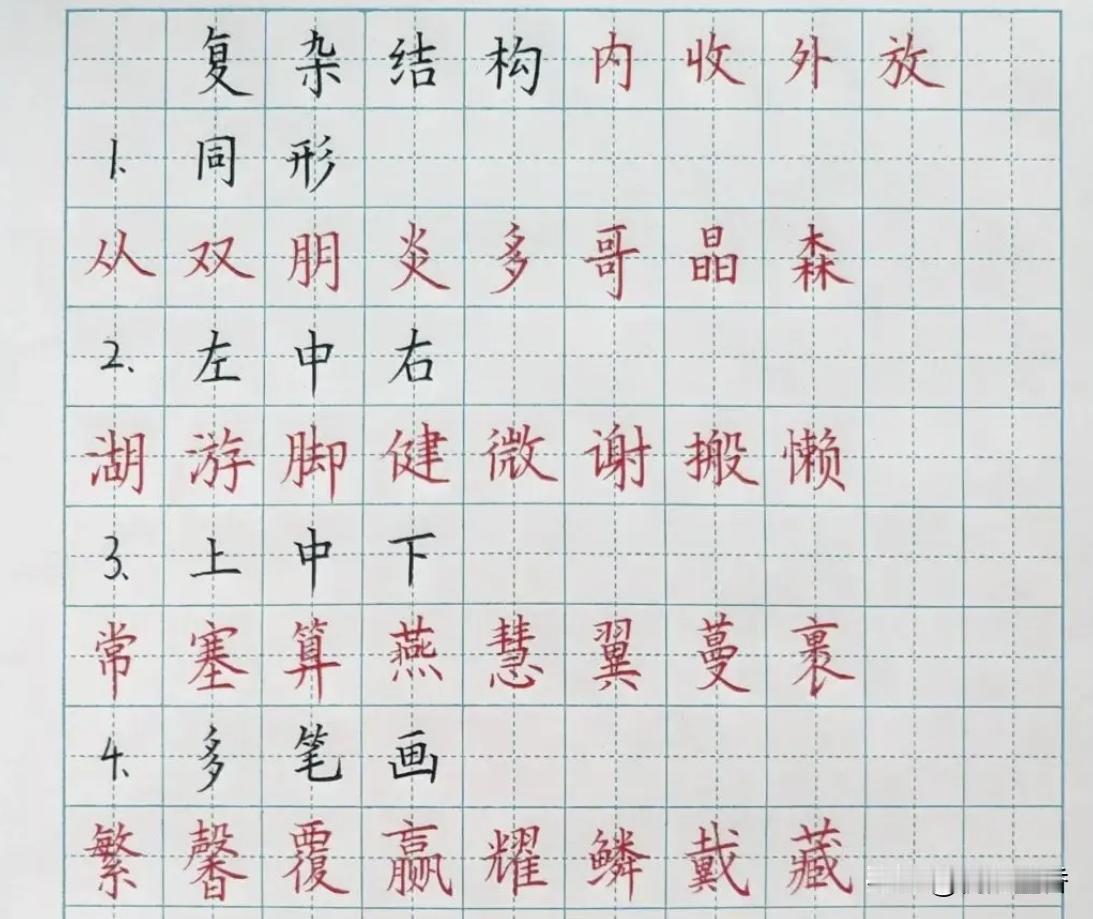 复杂结构内收外放
1.同形
从双朋炎多哥晶森
2.左中右
湖游脚健微谢搬懒
3.上中下
常塞算燕慧翼蔓裹
4.多笔画
繁馨覆赢耀鳞戴藏